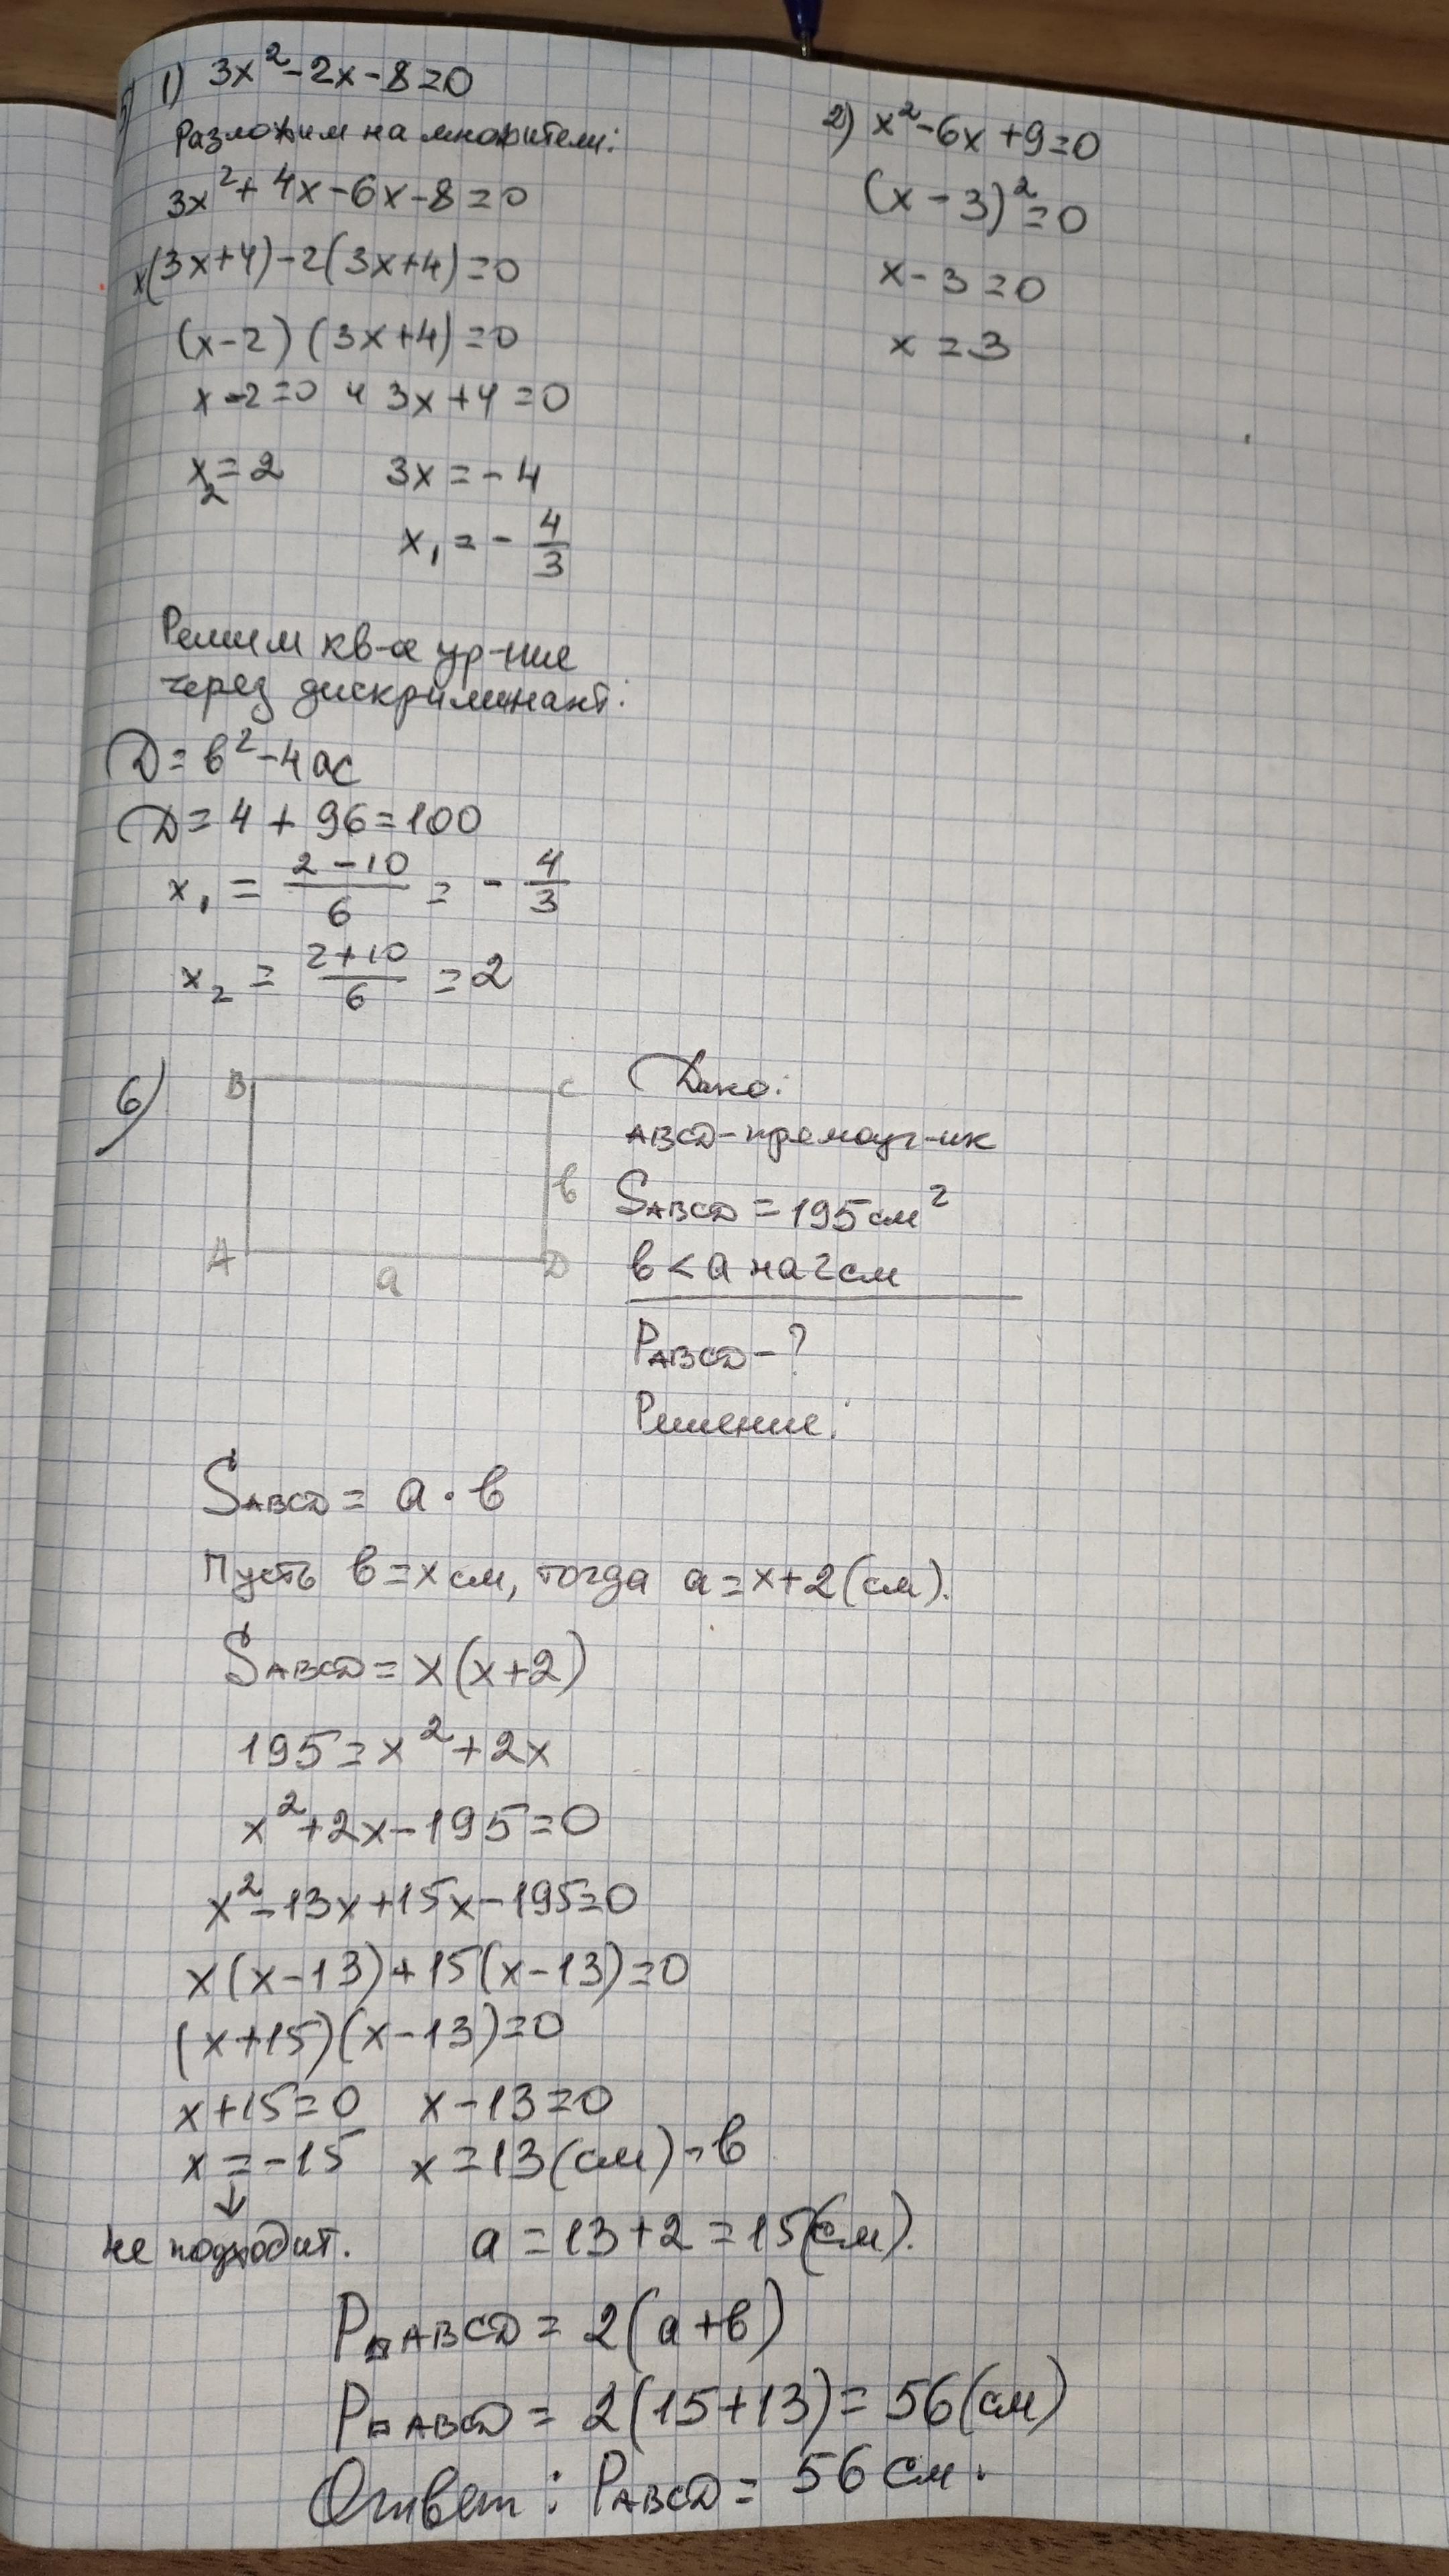 5) 1) 3x² - 2x - 8 = 0
Разложим на множители:
3x² + 4x - 6x - 8 = 0
x(3x+4) - 2(3x+4) = 0
(x-2)(3x+4) = 0
x-2=0 и 3x+4=0
x₂ = 2 3x = -4
x₁ = - 4/3
Решим кв-е ур-ние
через дискриминант:
D = b² - 4ac
D = 4 + 96 = 100
x₁ = (2-10)/6 = - 4/3
x₂ = (2+10)/6 = 2
2) x² - 6x + 9 = 0
(x - 3)² = 0
x - 3 = 0
x = 3
6)
B C
b
A D
a
Дано:
ABCD - прямоуг-ик
S_ABCD = 195 см²
b < a на 2 см
P_ABCD - ?
Решение:
S_ABCD = a · b
Пусть b = x см, тогда a = x+2 (см).
S_ABCD = x(x+2)
195 = x² + 2x
x² + 2x - 195 = 0
x² - 13x + 15x - 195 = 0
x(x-13) + 15(x-13) = 0
(x+15)(x-13) = 0
x+15=0 x-13=0
x = -15 x = 13 (см) - b
↓
не подходит. a = 13+2 = 15 (см).
P▱ABCD = 2(a+b)
P▱ABCD = 2(15+13) = 56 (см)
Ответ: P_ABCD = 56 см.